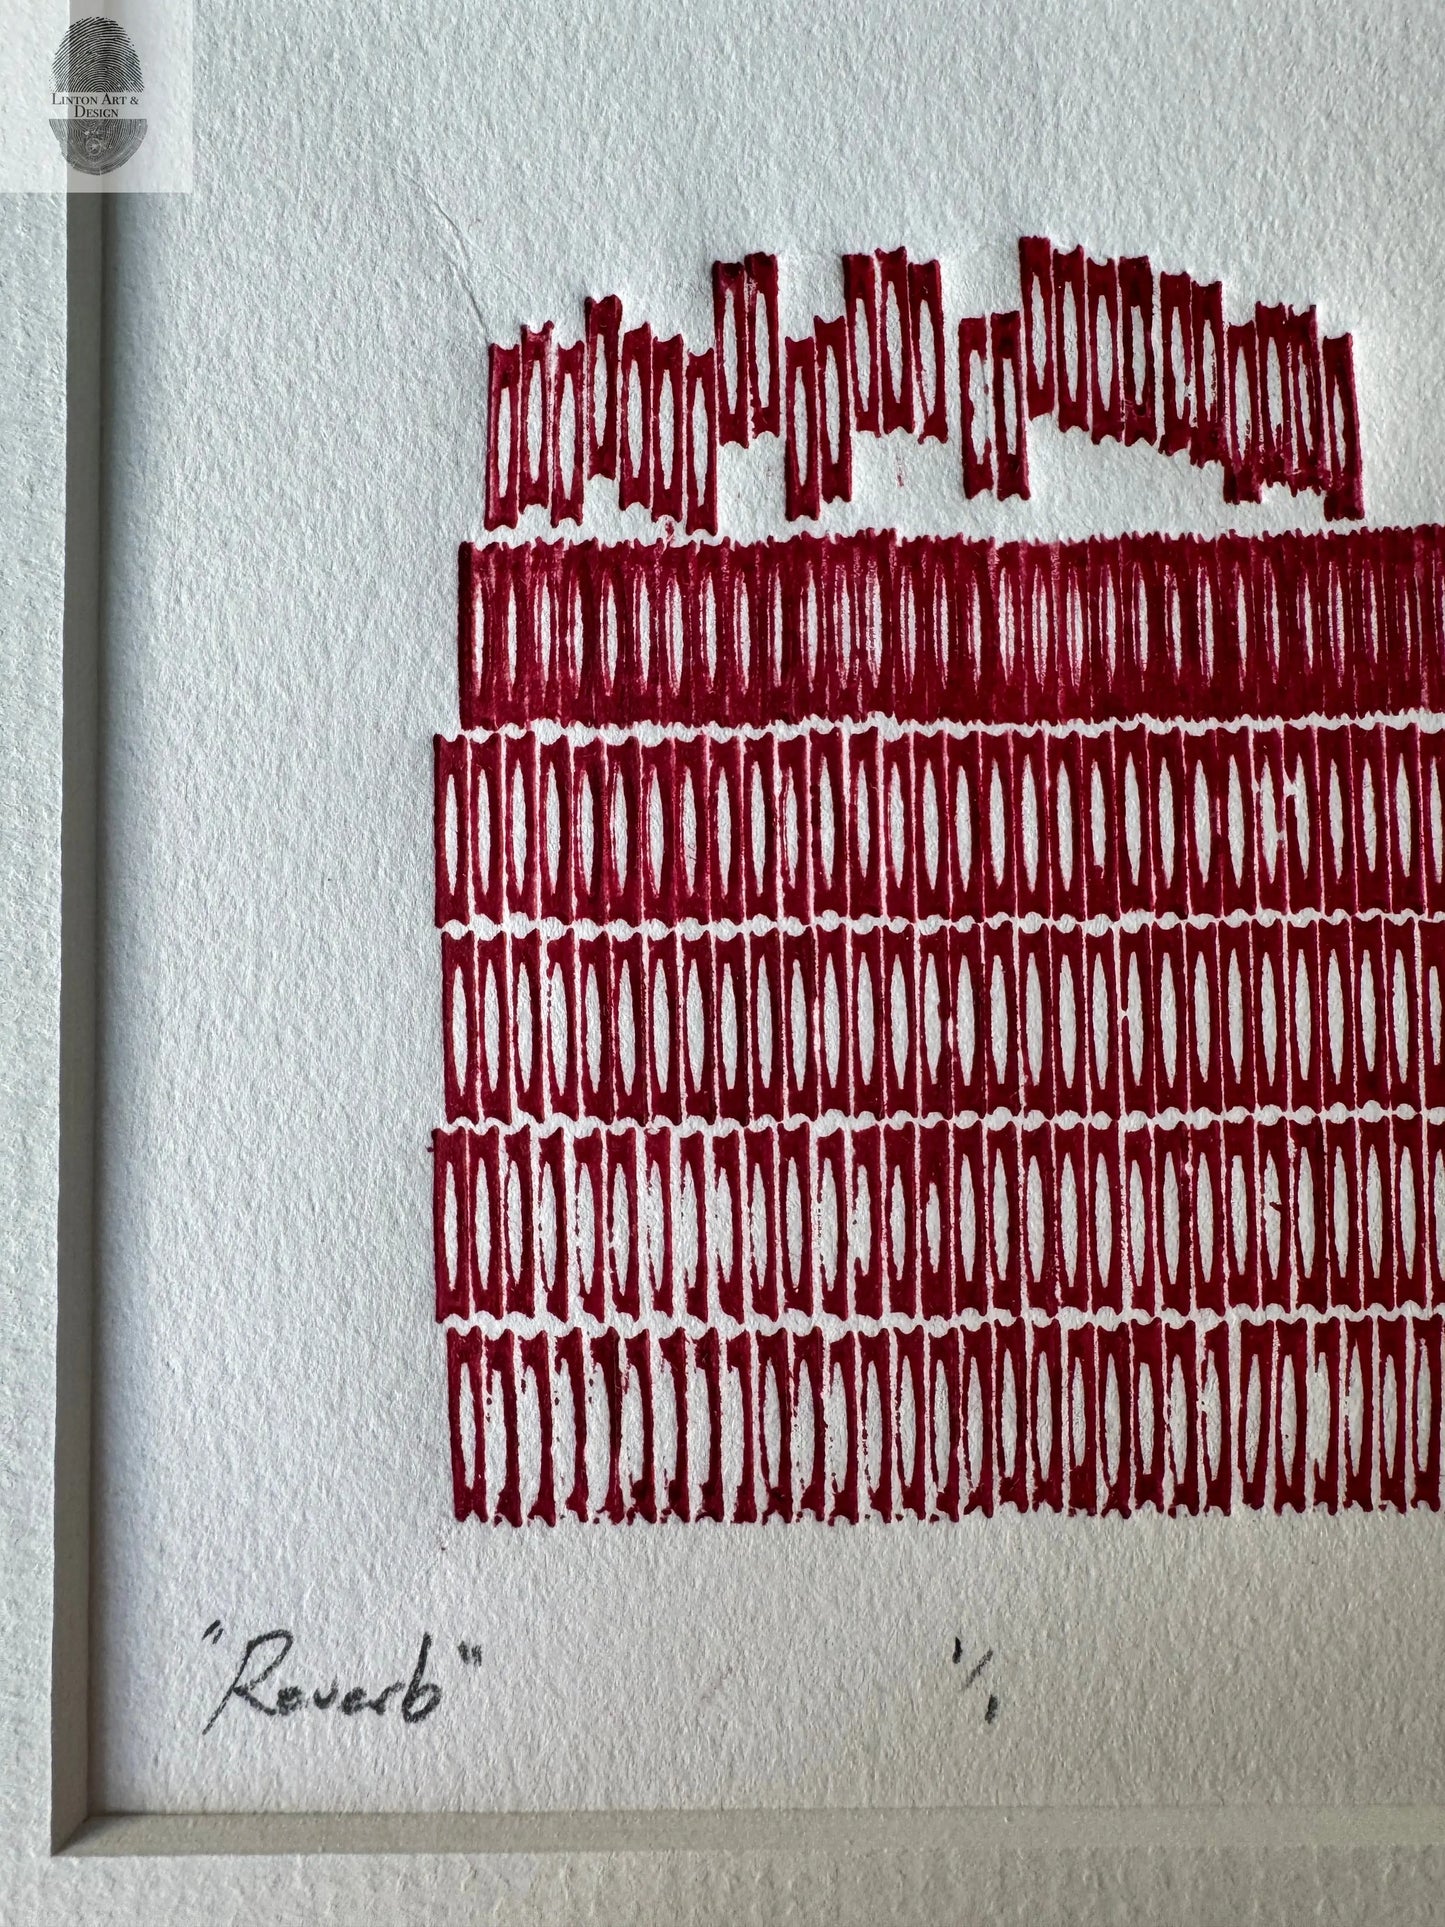 LINTON ART &
DESIGN
"Reverb" 1/1